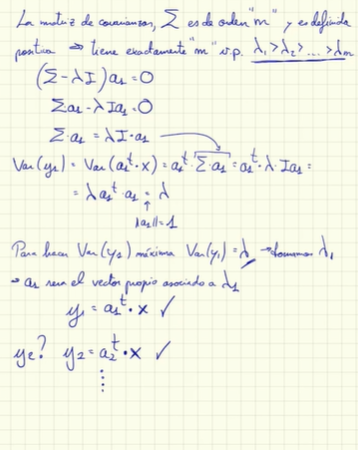 La matriz de covarianzas, Σ es de orden "m" y es definida
positiva ⇒ tiene exactamente "m" v.p. λ₁>λ₂>...>λm
(Σ-λI)a₁=0
Σa₁-λIa₁=0
Σ·a₁=λI·a₁
Var(y₁)=Var(a₁ᵗ·x)=a₁ᵗ·Σ·a₁=a₁ᵗ·λ·Ia₁=
=λa₁ᵗ·a₁=λ
↑
‖a₁‖=1
Para hacer Var(y₁) máxima Var(y₁)=λ →tomamos λ₁
→a₁ sera el vector propio asociado a λ₁
y₁=a₁ᵗ·x ✓
y₂? y₂=a₂ᵗ·x ✓
⋮